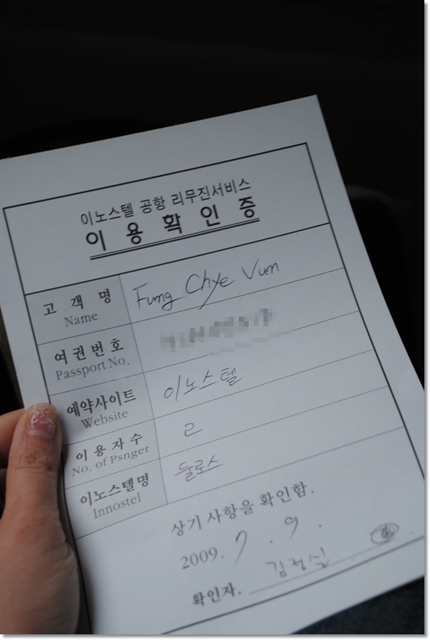 이노스텔 공항 리무진서비스
이 용 확 인 증
고 객 명 Fung Chye Vun
Name
여권번호
Passport No.
예약사이트 이노스텔
Website
이 용 자 수 2
No. of Psnger
이노스텔명 둘로스
Innostel
상기 사항을 확인함.
2009. 7 . 9 .
확인자.